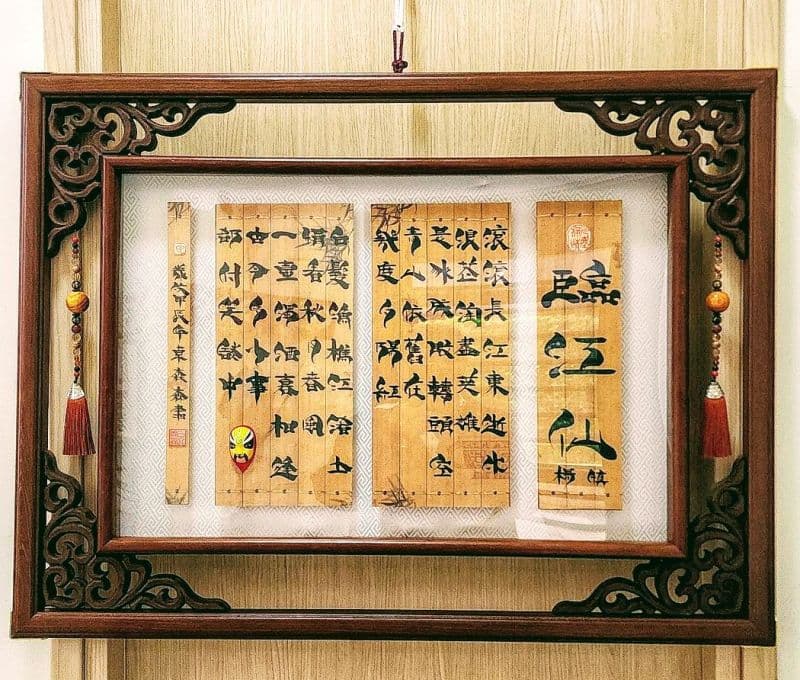 臨江仙
楊慎
滾滾長江東逝水
浪花淘盡英雄
是非成敗轉頭空
青山依舊在
幾度夕陽紅
白髮漁樵江渚上
慣看秋月春風
一壺濁酒喜相逢
古今多少事
都付笑談中
歲次甲辰年